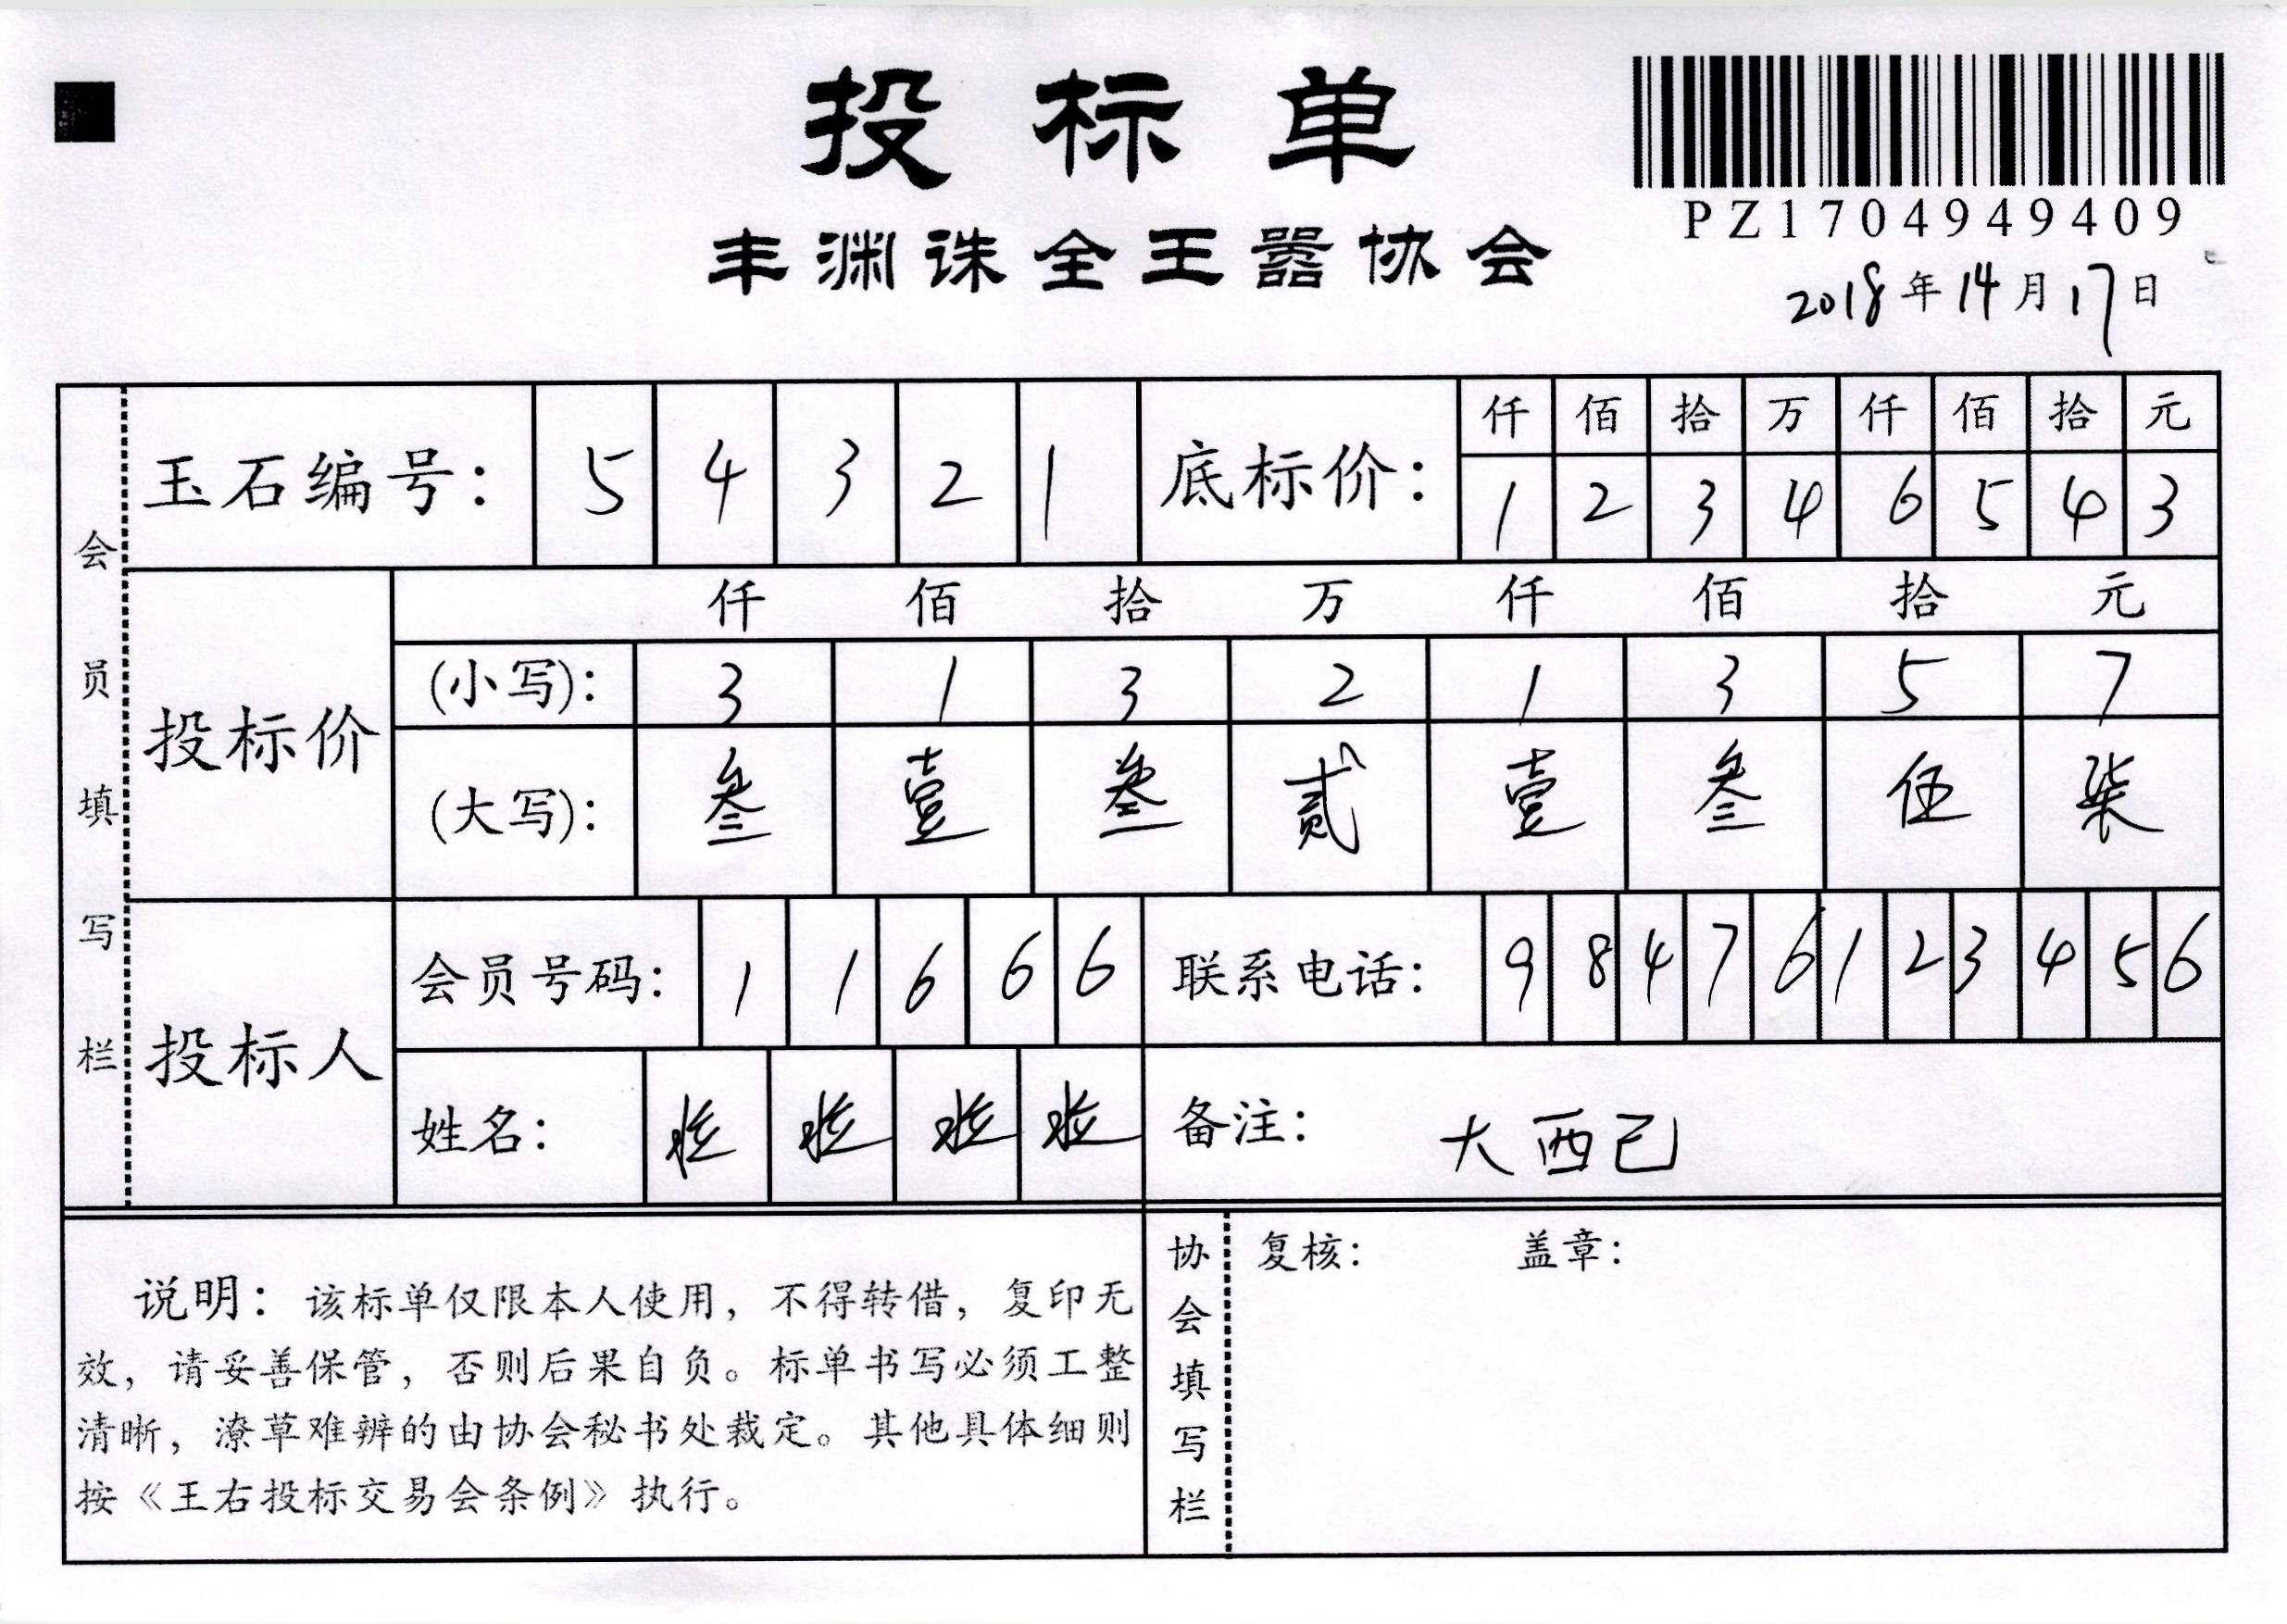 投标单
PZ1704949409
丰渊诛全王嚣协会
2018年14月17日
会员填写栏
玉石编号: 5 4 3 2 1
底标价: 仟 佰 拾 万 仟 佰 拾 元
1 2 3 4 6 5 4 3
投标价
仟 佰 拾 万 仟 佰 拾 元
(小写): 3 1 3 2 1 3 5 7
(大写): 叁 壹 叁 贰 壹 叁 伍 柒
投标人
会员号码: 1 1 6 6 6
联系电话: 9 8 4 7 6 1 2 3 4 5 6
姓名:
备注: 大西己
说明: 该标单仅限本人使用, 不得转借, 复印无
效, 请妥善保管, 否则后果自负。标单书写必须工整
清晰, 潦草难辨的由协会秘书处裁定。其他具体细则
按《王右投标交易会条例》执行。
协会填写栏
复核: 盖章: